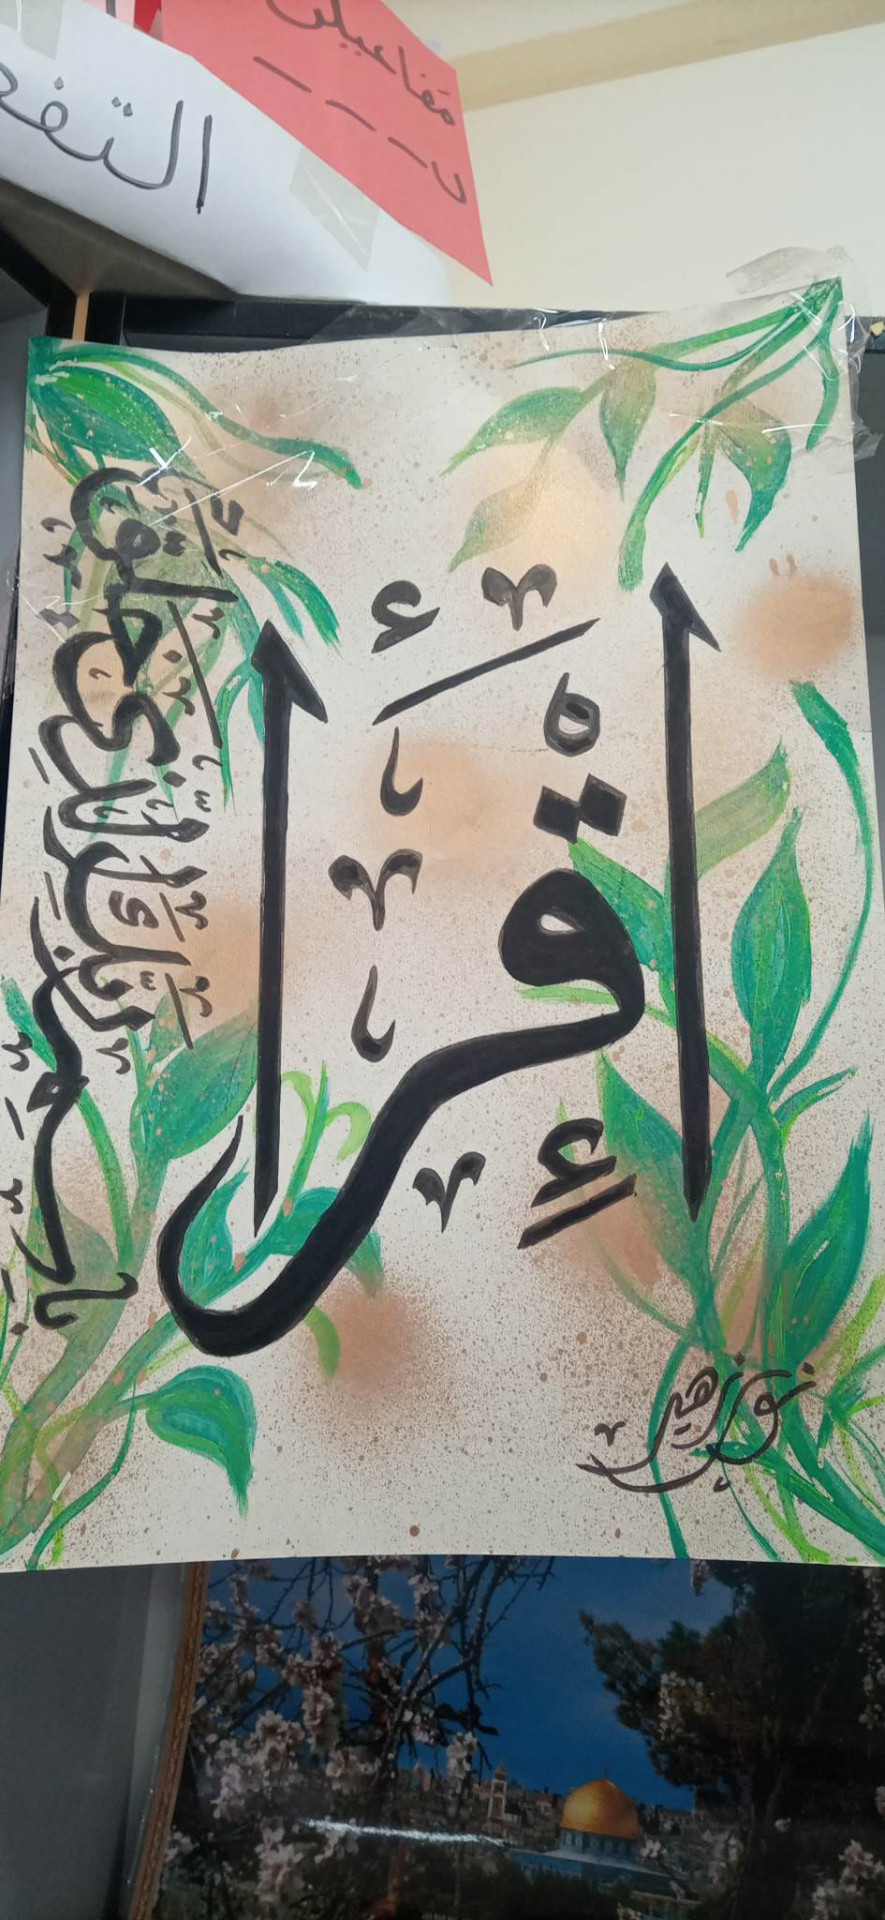 مَفاعيلن
ں − − −
التفع
إِقْرَأ
بِاسْمِ رَبِّكَ الَّذِي خَلَقَ
نور زهير